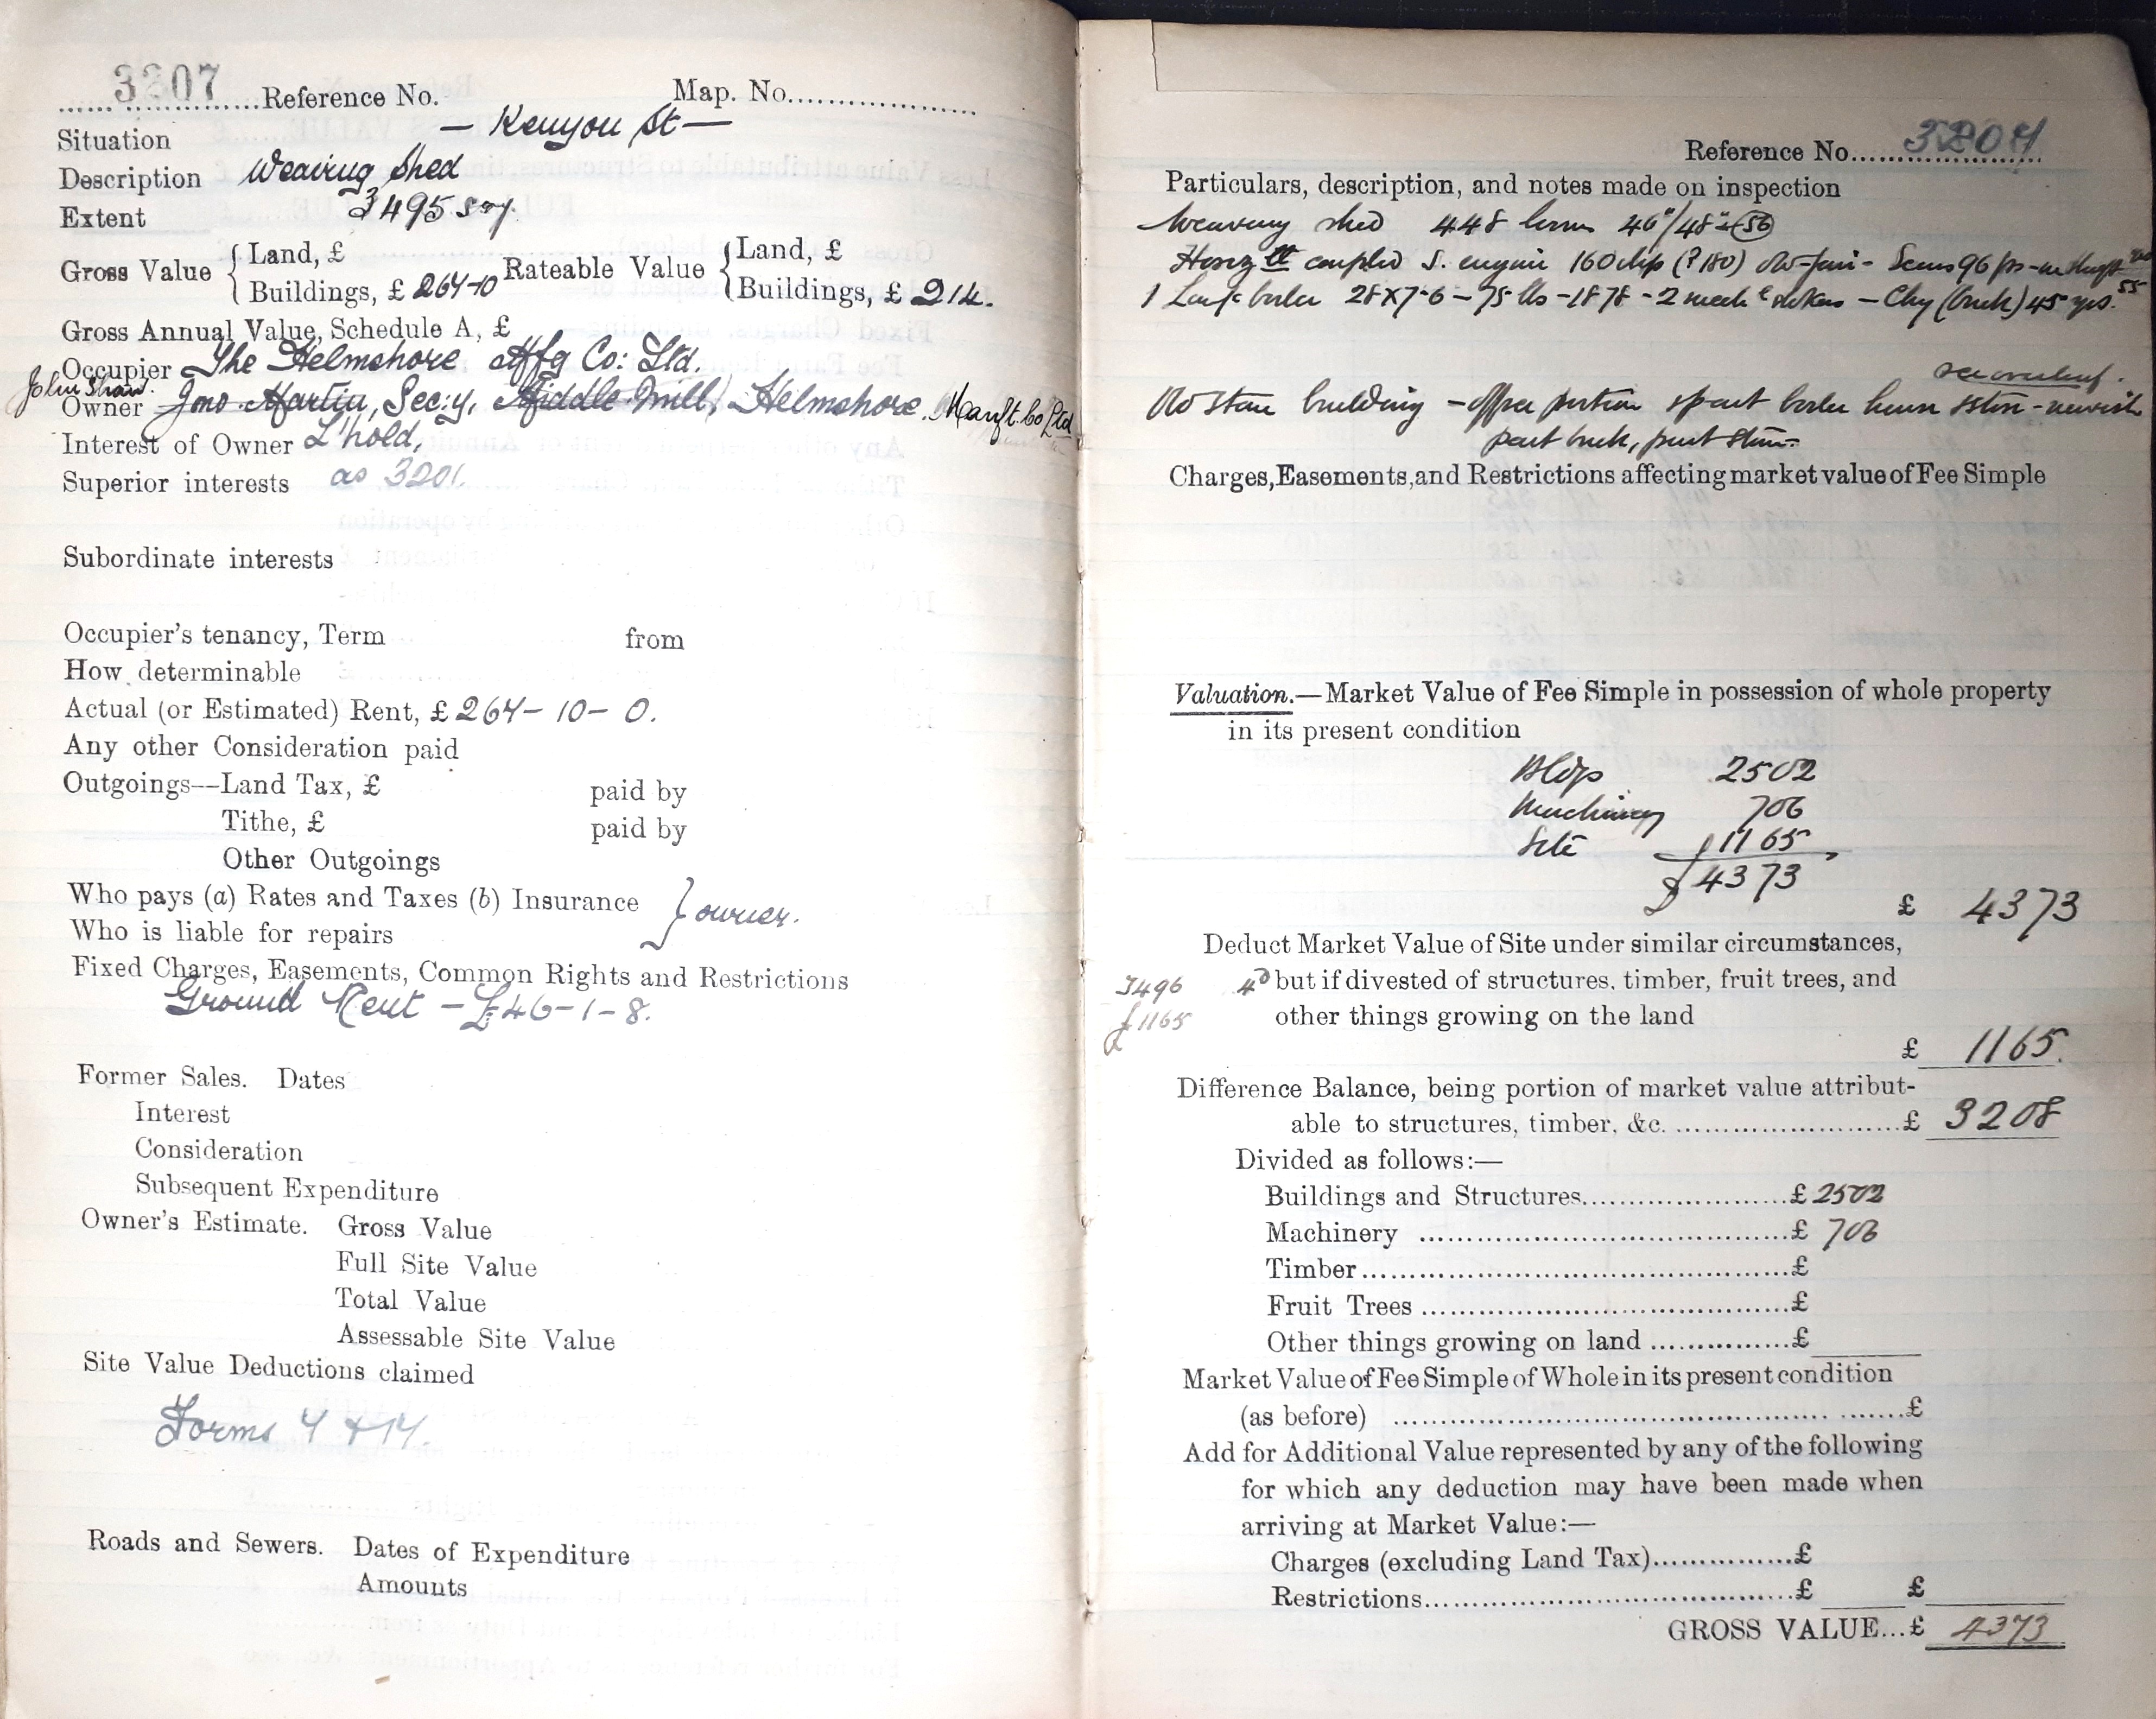 3207 Reference No. Map. No.
Situation — Kenyon St —
Description Weaving Shed
Extent 3495 sqy.
Gross Value { Land, £ Rateable Value { Land, £
Buildings, £ 264-10 Buildings, £ 214.
Gross Annual Value, Schedule A, £
Occupier The Helmshore Mfg Co: Ltd.
John Shaw.
Owner Jno Martin, Sec:y, Middle Mill, Helmshore. Manft. Co Ltd
Interest of Owner L'hold,
Superior interests as 3201.
Subordinate interests
Occupier's tenancy, Term from
How determinable
Actual (or Estimated) Rent, £ 264-10-0.
Any other Consideration paid
Outgoings—Land Tax, £ paid by
Tithe, £ paid by
Other Outgoings
Who pays (a) Rates and Taxes (b) Insurance } owner.
Who is liable for repairs
Fixed Charges, Easements, Common Rights and Restrictions
Ground Rent - £46-1-8.
Former Sales. Dates
Interest
Consideration
Subsequent Expenditure
Owner's Estimate. Gross Value
Full Site Value
Total Value
Assessable Site Value
Site Value Deductions claimed
Forms 4 & 14.
Roads and Sewers. Dates of Expenditure
Amounts
Reference No. 3207
Particulars, description, and notes made on inspection
Weaving shed 448 looms 46"/48"
Horiz coupled S. engine 160 (?180)
1 boiler 28x7-6 - 75 lbs - 1878 - 2 - Chy (brick) 45 yds. 55
see overleaf.
Old stone building - part boiler house
part brick, part stone
Charges, Easements, and Restrictions affecting market value of Fee Simple
Valuation.—Market Value of Fee Simple in possession of whole property
in its present condition
Bldgs 2502
Machinery 706
Site 1165
£4373
£ 4373
Deduct Market Value of Site under similar circumstances,
3496 4d but if divested of structures, timber, fruit trees, and
£1165 other things growing on the land
£ 1165.
Difference Balance, being portion of market value attribut-
able to structures, timber, &c. £ 3208
Divided as follows:—
Buildings and Structures £ 2502
Machinery £ 706
Timber £
Fruit Trees £
Other things growing on land £
Market Value of Fee Simple of Whole in its present condition
(as before) £
Add for Additional Value represented by any of the following
for which any deduction may have been made when
arriving at Market Value:—
Charges (excluding Land Tax) £
Restrictions £ £
GROSS VALUE...£ 4373